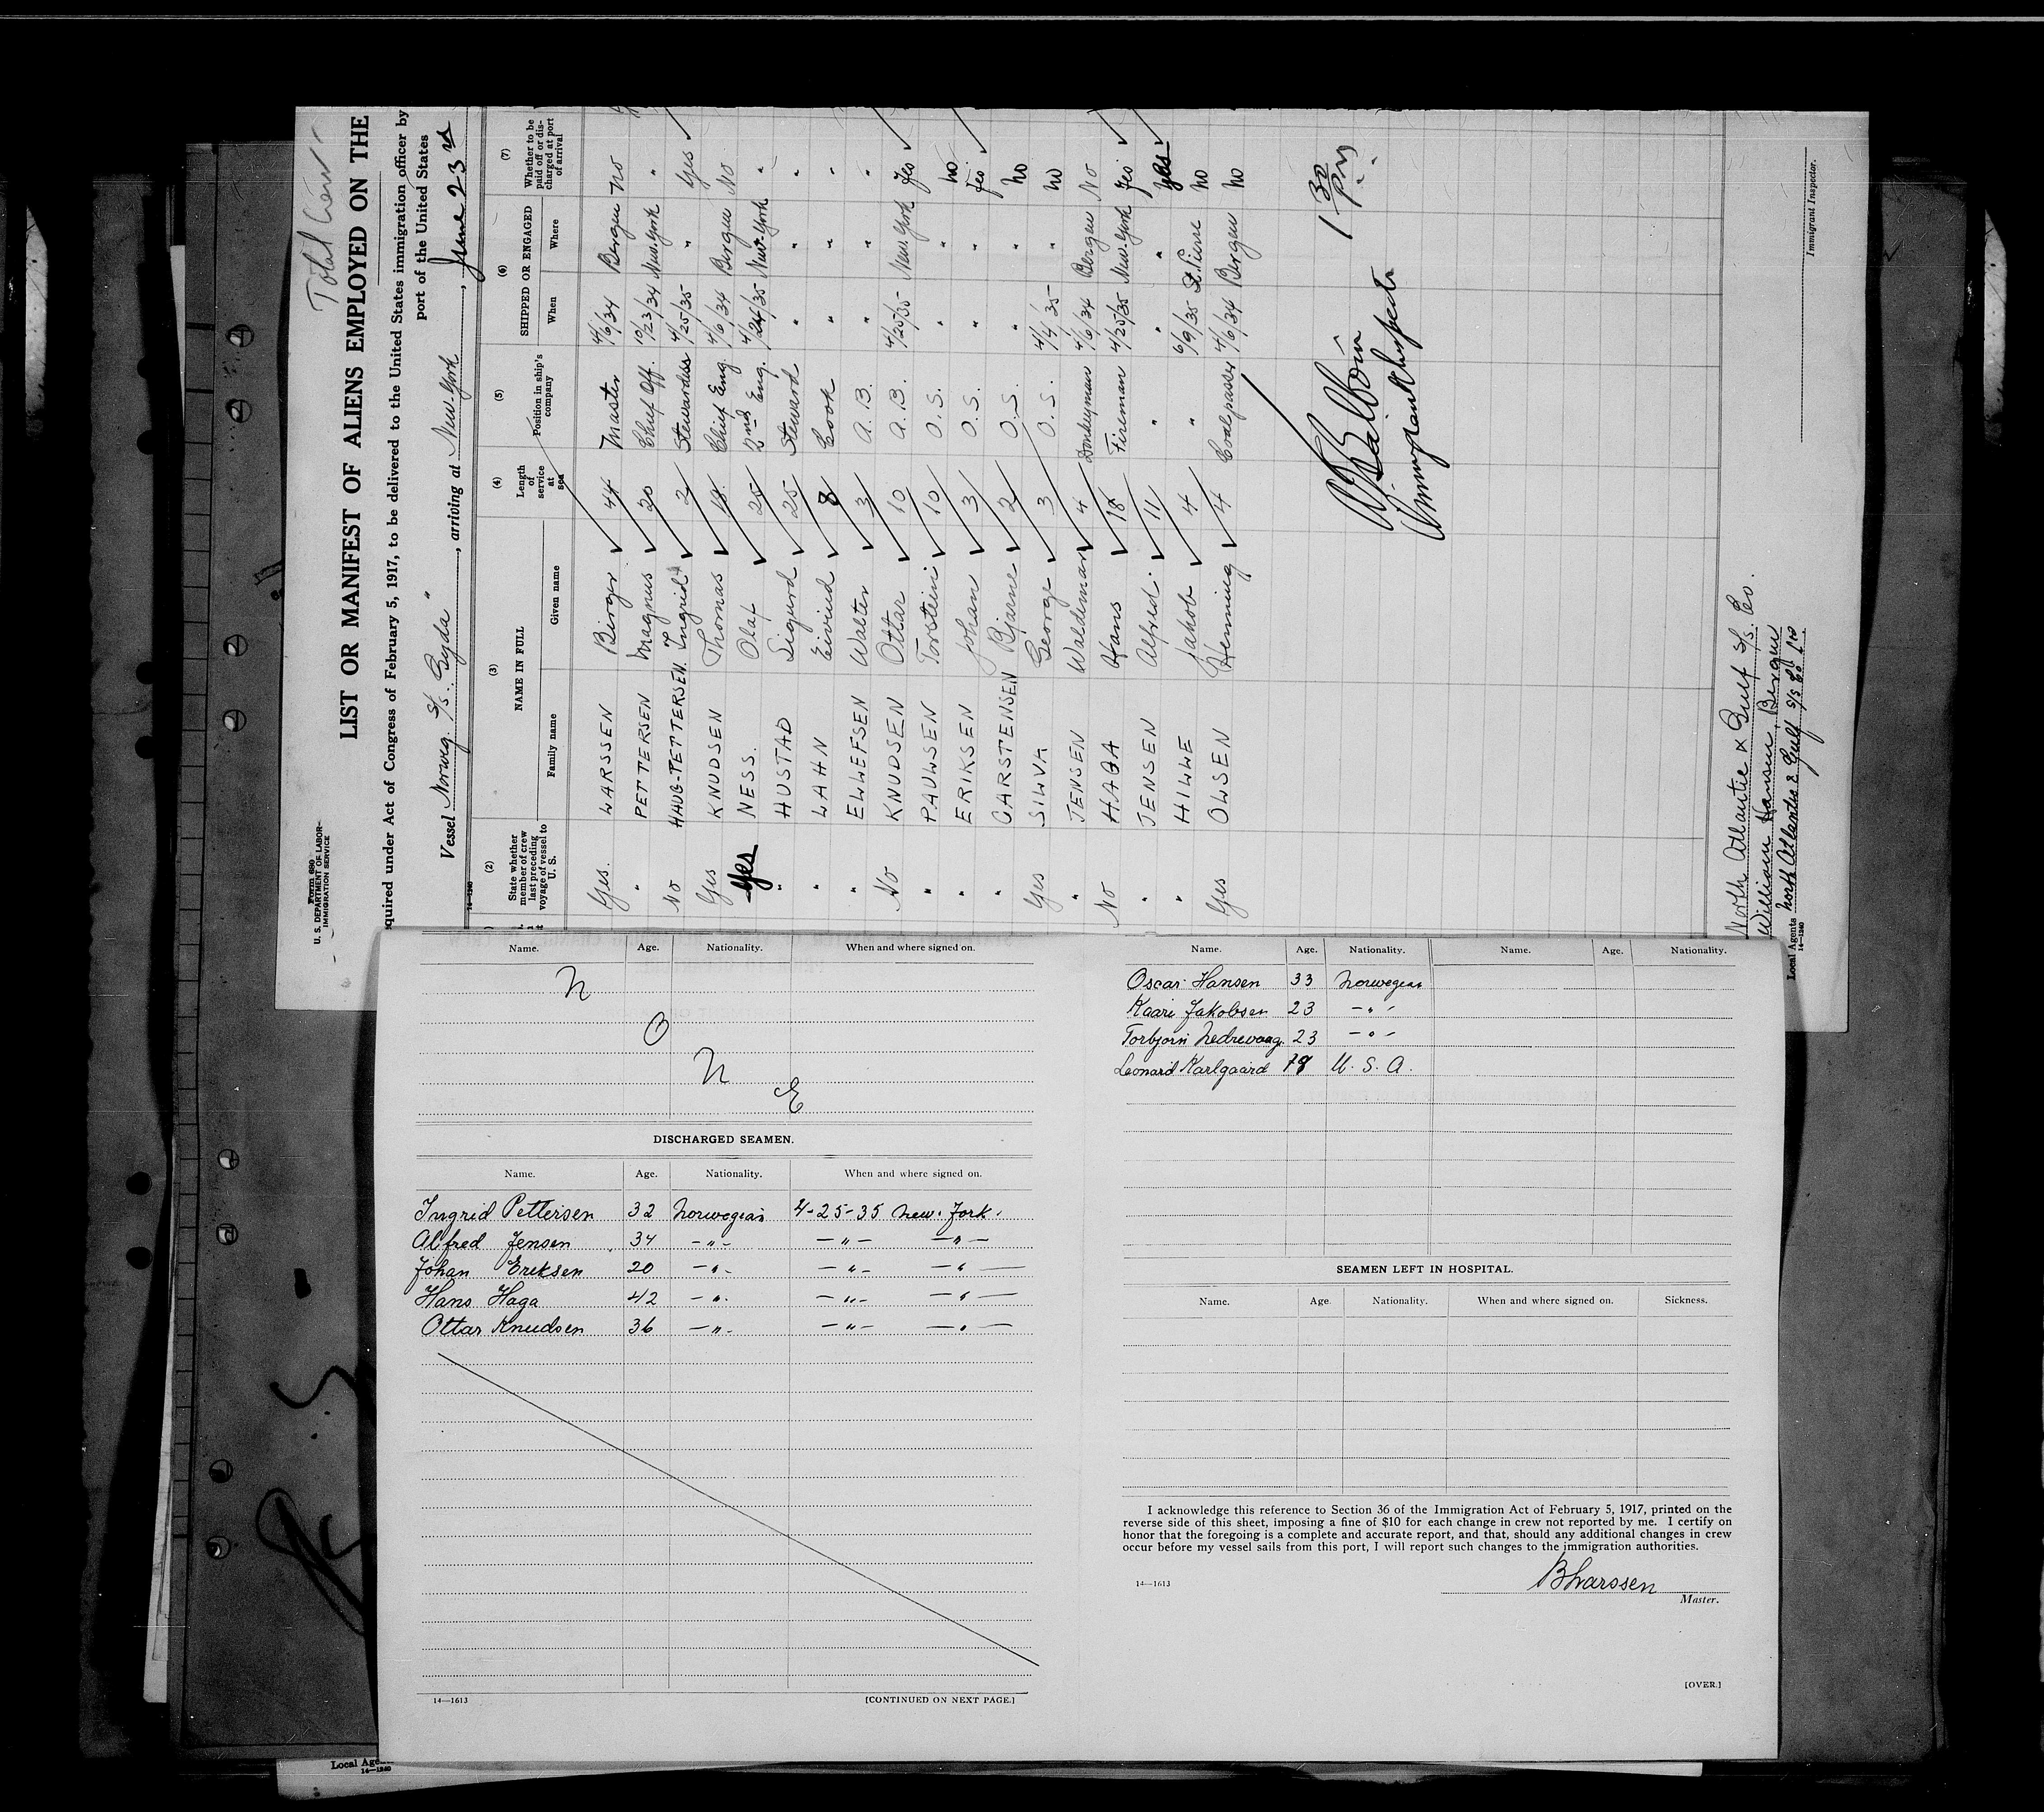 Total Crew
Form 680
U. S. DEPARTMENT OF LABOR
IMMIGRATION SERVICE
LIST OR MANIFEST OF ALIENS EMPLOYED ON THE
equired under Act of Congress of February 5, 1917, to be delivered to the United States immigration officer by
port of the United States
Vessel Norweg. S/s. Gyda", arriving at New-York, June 23rd
14—1240
(2) (3) (4) (5) (6) (7)
State whether member of crew last preceding voyage of vessel to U. S.
NAME IN FULL
Family name Given name
Length of service at sea
Position in ship's company
SHIPPED OR ENGAGED
When Where
Whether to be paid off or discharged at port of arrival
Yes. LARSSEN Birger 44 Master 4/6/34 Bergen no
" PETTERSEN Magnus 20 Chief Off. 10/23/34 New-York "
No HAUG-PETTERSEN. Ingrid 2 Stewardess 4/25/35 " Yes
Yes KNUDSEN Thomas 18. Chief Eng. 4/6/34 Bergen No
Yes NESS. Olaf 25 2nd Eng. 4/24/35 New-York "
" HUSTAD Sigurd 25 Steward " " "
" LAHN Eivind 8 Cook " " "
" ELLEFSEN Walter 3 A. B. " " "
No KNUDSEN Ottar 10 A. B. 4/25/35 New-York Yes
" PAULSEN Torstein 10 O. S. " " no
" ERIKSEN Johan 3 O. S. " " Yes.
" CARSTENSEN Bjarne 2 O. S. " " no
Yes SILVA George 3 O. S. 4/4/35 " no
" JENSEN Waldemar 4 Donkeyman 4/6/34 Bergen No
No HAGA Hans 18 Fireman 4/25/35 New-York Yes
" JENSEN Alfred. 11 " " " Yes
" HILLE Jakob 4 " 6/9/35 St. Pierre no
Yes OLSEN Henning 4 Coalpasser 4/6/34 Bergen no
1 30 P.M.
Immigrant Inspector
Immigrant Inspector.
North Atlantic & Gulf S/s. Co.
William Hansen, Bergen
Local Agents North Atlantic & Gulf S/S Co Inc
14—1240
Name. Age. Nationality. When and where signed on.
N
O
N
E
DISCHARGED SEAMEN.
Name. Age. Nationality. When and where signed on.
Ingrid Pettersen 32 Norwegian 4-25-35 New-York.
Alfred Jensen 34 -"- -"- -"-
Johan Eriksen 20 -"- -"- -"-
Hans Haga 42 -"- -"- -"-
Ottar Knudsen 36 -"- -"- -"-
14—1613 [CONTINUED ON NEXT PAGE.]
Name. Age. Nationality. Name. Age. Nationality.
Oscar Hansen 33 Norwegian
Kaare Jakobsen 23 -"-
Torbjorn Nedrevaag. 23 -"-
Leonard Karlgaard 18 U. S. A.
SEAMEN LEFT IN HOSPITAL.
Name. Age. Nationality. When and where signed on. Sickness.
I acknowledge this reference to Section 36 of the Immigration Act of February 5, 1917, printed on the
reverse side of this sheet, imposing a fine of $10 for each change in crew not reported by me. I certify on
honor that the foregoing is a complete and accurate report, and that, should any additional changes in crew
occur before my vessel sails from this port, I will report such changes to the immigration authorities.
14—1613
B Larssen
Master.
[OVER.]
Local Age
14—1240